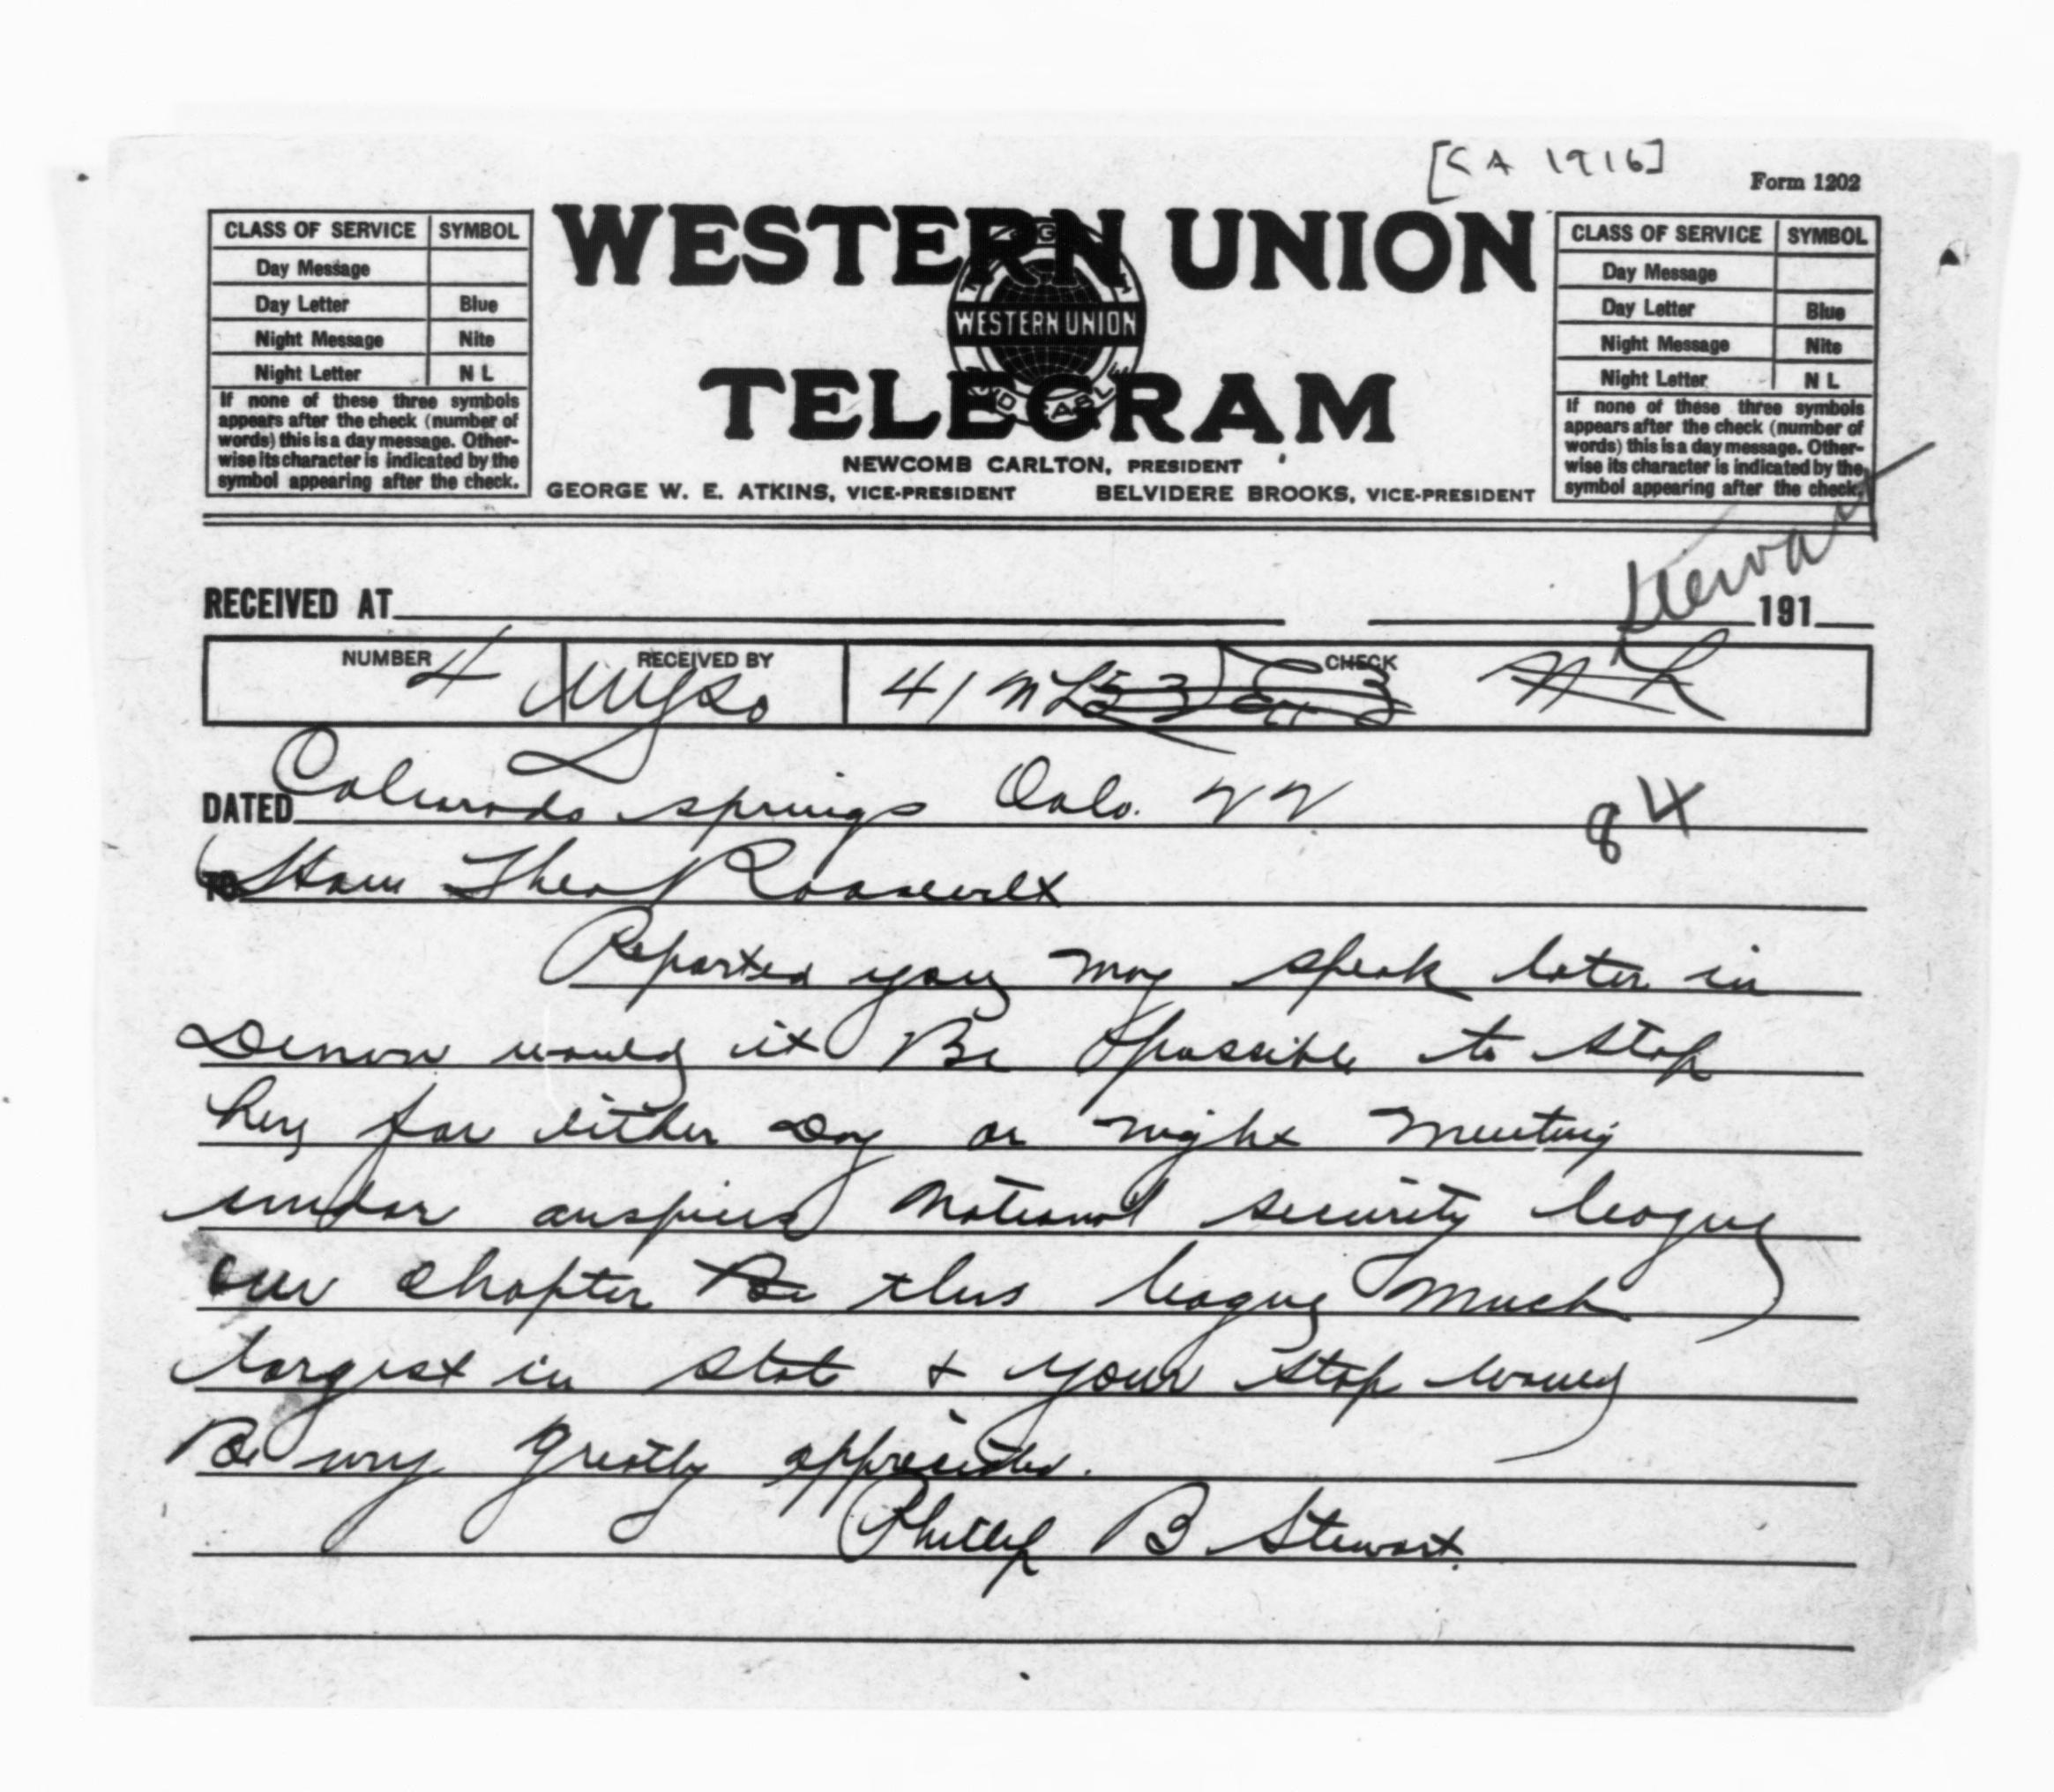 [CA 1916]
Form 1202
CLASS OF SERVICE SYMBOL
Day Message
Day Letter Blue
Night Message Nite
Night Letter N L
If none of these three symbols
appears after the check (number of
words) this is a day message. Other-
wise its character is indicated by the
symbol appearing after the check.
WESTERN UNION
WESTERN UNION
TELEGRAM
NEWCOMB CARLTON, PRESIDENT
GEORGE W. E. ATKINS, VICE-PRESIDENT BELVIDERE BROOKS, VICE-PRESIDENT
CLASS OF SERVICE SYMBOL
Day Message
Day Letter Blue
Night Message Nite
Night Letter N L
If none of these three symbols
appears after the check (number of
words) this is a day message. Other-
wise its character is indicated by the
symbol appearing after the check.
Stewart
RECEIVED AT 191
NUMBER RECEIVED BY CHECK
4 41 NL
DATED Colorado Springs Colo. 22
84
TO Hon Theo Roosevelt
Reported you may speak later in
Denver would it Be possible to stop
here for either Day or night meeting
under auspices National security league
our chapter Be this league much
largest in state + your stop would
Be very greatly appreciated.
Phillip B Stewart.